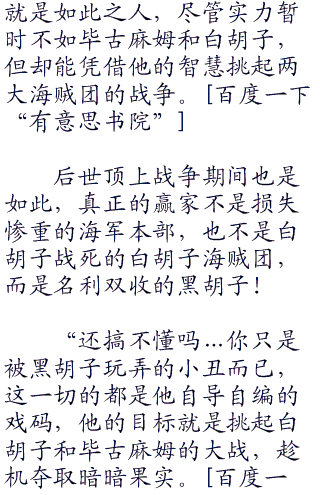 就是如此之人，尽管实力暂
时不如毕古麻姆和白胡子，
但却能凭借他的智慧挑起两
大海贼团的战争。[百度一下
“有意思书院”]
后世顶上战争期间也是
如此，真正的赢家不是损失
惨重的海军本部，也不是白
胡子战死的白胡子海贼团，
而是名利双收的黑胡子！
“还搞不懂吗…你只是
被黑胡子玩弄的小丑而已，
这一切的都是他自导自编的
戏码，他的目标就是挑起白
胡子和毕古麻姆的大战，趁
机夺取暗暗果实。[百度一